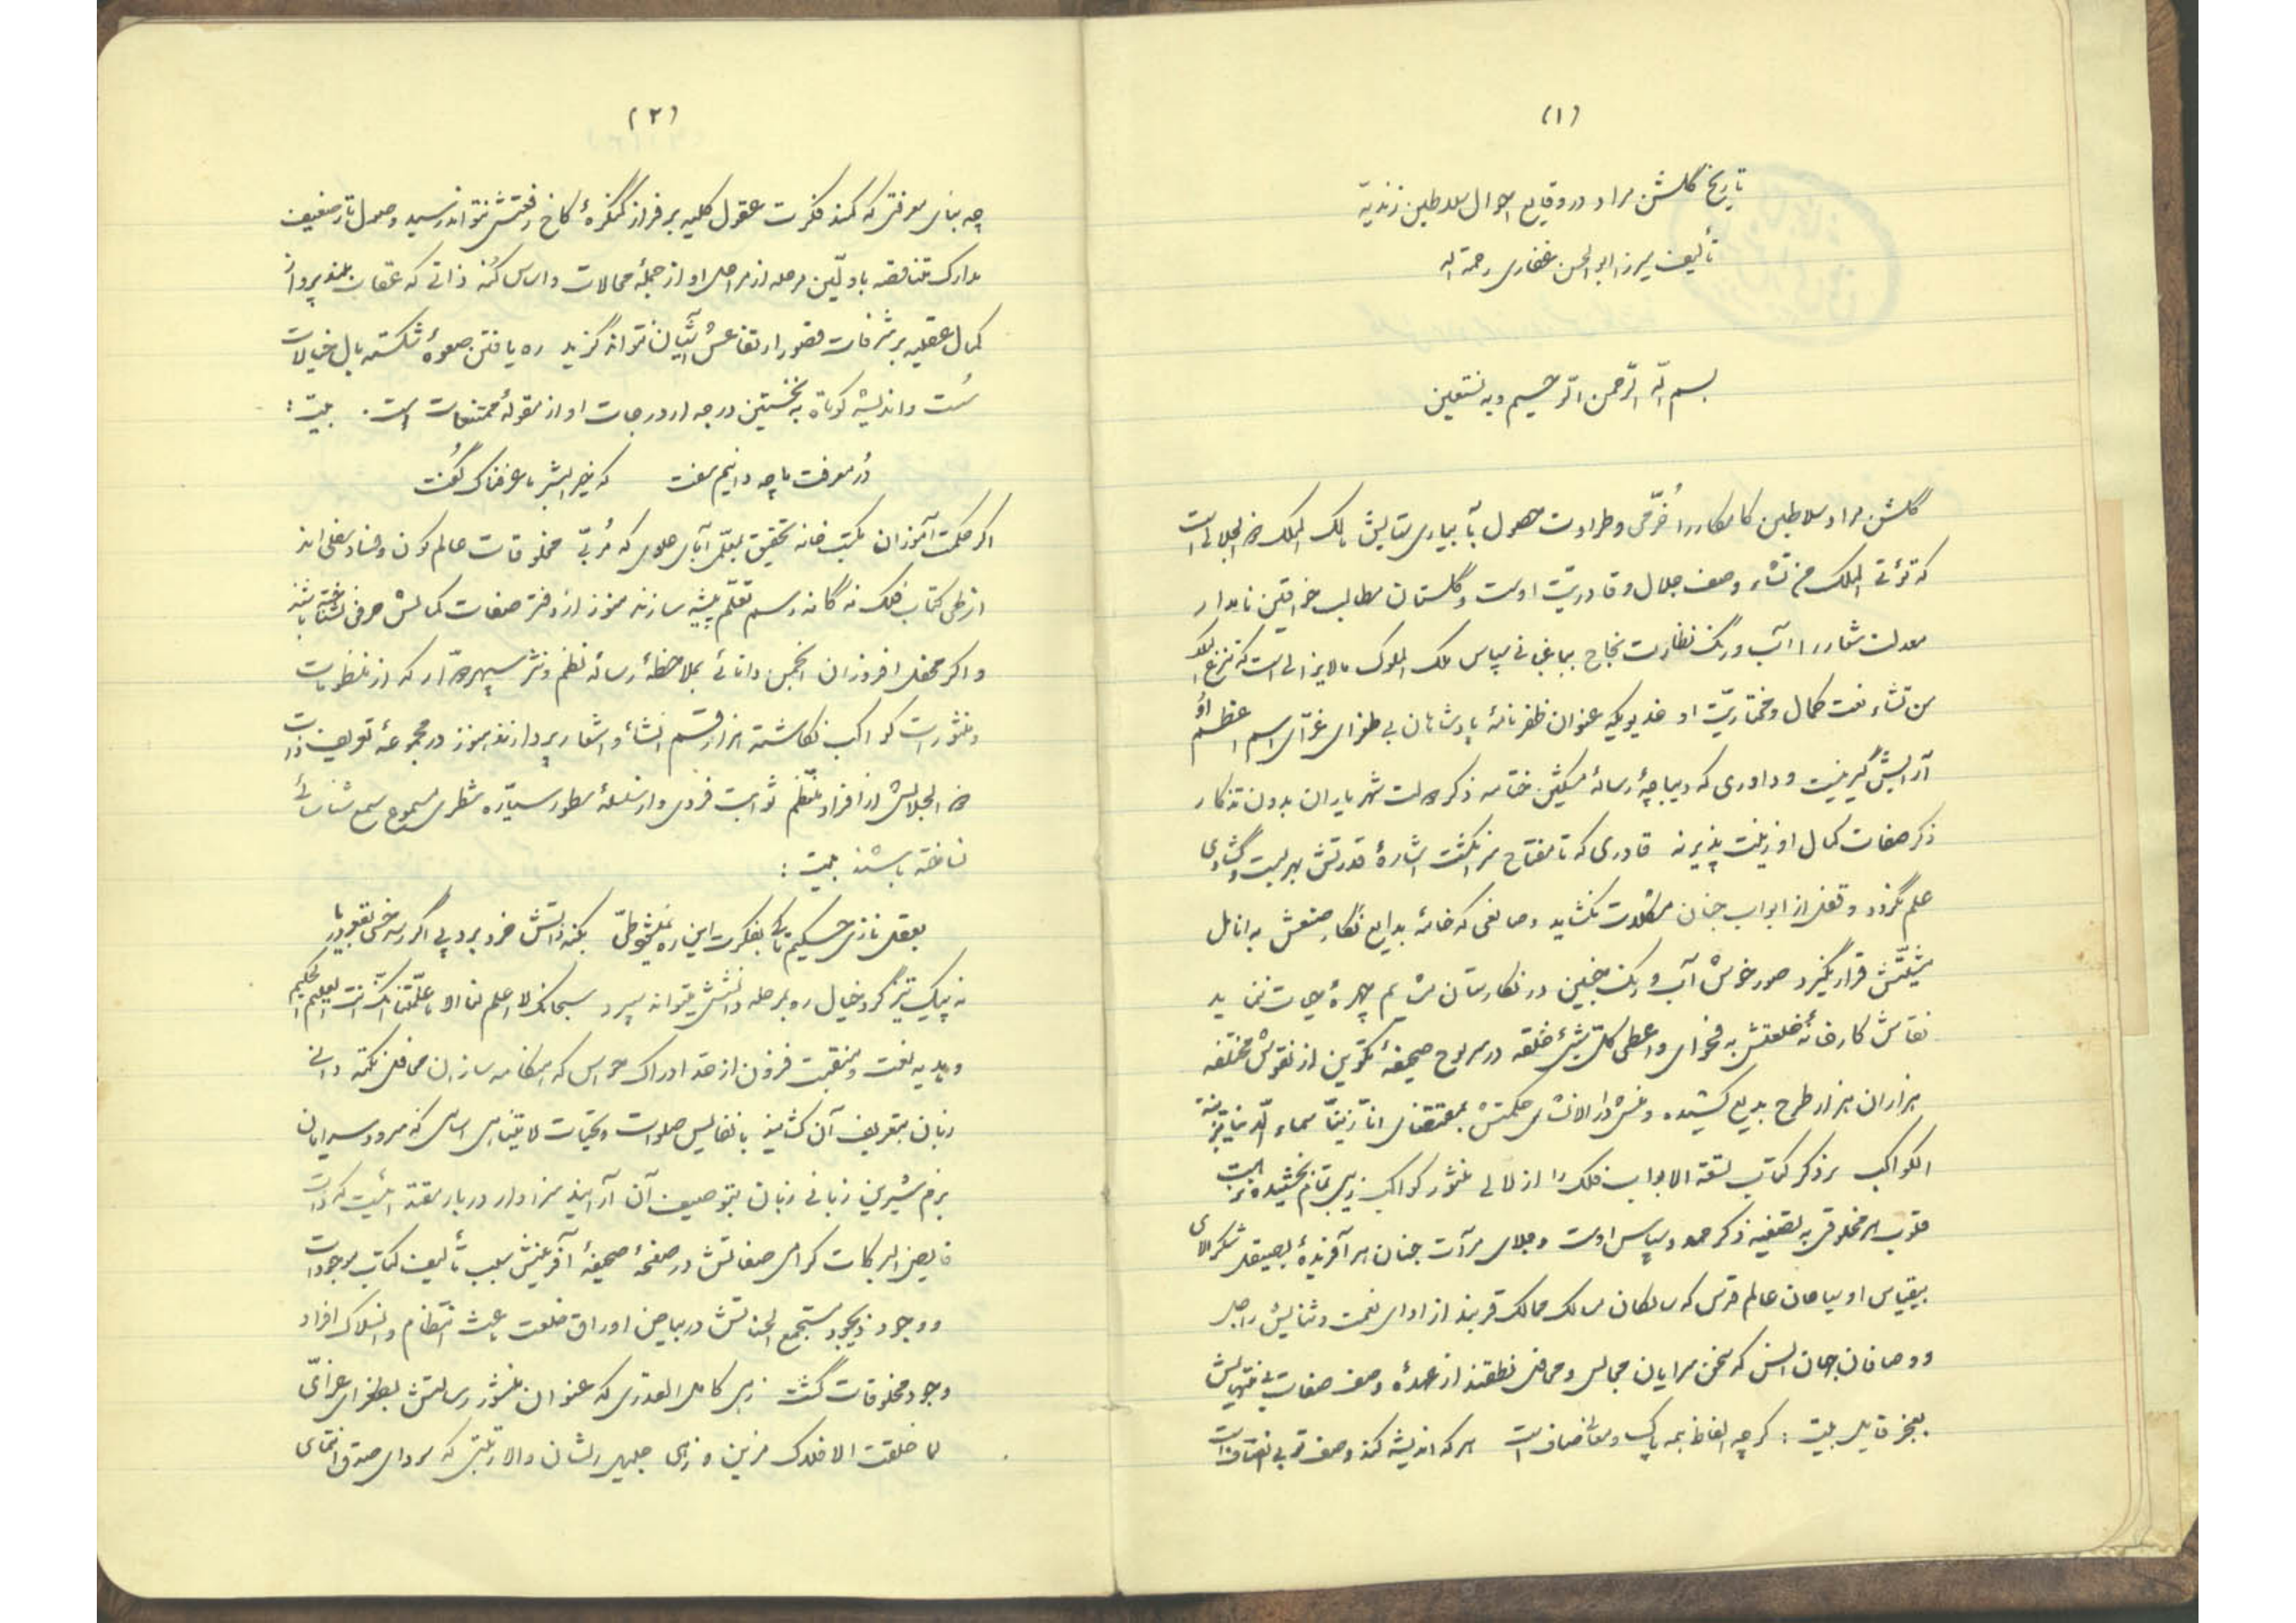 (۱)
تاریخ گلشن مراد در وقایع احوال سلاطین زندیّه
تألیف میرزا ابوالحسن غفاری رحمة اله
بسم الله الرّحمن الرّحیم وبه نستعین
گلشن مراد سلاطین کامکار را خُرّمی و طراوت حصول بآبیاری ستایش مالک الملک ذو الجلالی است
که تؤتی الملک من تشاء وصف جلال و قادریّت اوست و گلستان مطالب خواقین نامدار
معدلت شعار را آب و رنگ نظارت نجاح بباغبانی سپاس ملک الملوک لایزالی است که تنزع الملک
من تشاء نعت کمال و مختاریّت او خدیویکه عنوان ظفرنامهٔ پادشاهان بی طغرای غرّای اسم اعظم او
آرایش گیر نیست و داوری که دیباچهٔ رسالهٔ مشکین ختامه ذکر دولت شهریاران بدون تذکار
ذکر صفات کمال او زینت پذیر نه قادری که تا مفتاح سرانگشت اشارهٔ قدرتش بهر بست و گشادی
علم نگردد و قفل از ابواب جنان مشکلات نگشاید و صانعی که خامهٔ بدایع نگار صنعش به انامل
مشیّتش قرار نگیرد صور خوش آب و رنگ جنین در نگارستان مشایم چهرهٔ حیات ننماید
نقاش کارخانهٔ خلقتش به فحوای واعطی کلّ شیئ خلقه در سر لوح صحیفهٔ تکوین از نقوش مختلفه
هزاران هزار طرح بدیع کشیده و منشی دارالانشای حکمتش بمقتضای انّا زیّنّا سماء الّدنیا بزینة
الکواکب بر ذکر کتاب تسعة الابواب فلک را از لالی منثور کواکب زیبی تمام بخشیده تربیت
قلوب هر مخلوقی به تصفیه ذکر حمد و سپاس اوست و جلای مرآت جنان هر آفریدهٔ بصیقل شکر الای
بیقیاس او سیاحان عالم قدس که سالکان مسالک ممالک قربند از ادای نعمت و ثنایش راجل
و وصافان جهان انس که سخن سرایان مجالس و محافل نطقند از عهدهٔ وصف صفات بی منتهایش
بعجز قایل بیت : گرچه الفاظ همه پاک و معانی صاف است هر که اندیشه کند وصف تو بی انصاف است
(۲)
چه بنای معرفتی که کمند فکرت عقول کلیه بر فراز کنگرهٔ کاخ رفعتش نتواند رسید وصول تار ضعیف
مدارک متناقصه باولّین مرحله از مراحل او از جملهٔ محالات و اساس کُنه ذاتی که عقاب بلند پرواز
کمال عقلیه بر شرفات قصور ارتفاعش آشیان نتواند گزید ره یافتن صعوهٔ شکسته بال خیالات
سُست و اندیشه کوتاه به نخستین درجه از درجات او از مقولهٔ ممتنعات است. بیت :
دُر معرفت ما چه دانیم سفت که خیرالبشر ما عرفناک گُفت
اگر حکمت آموزان مکتب خانه تحقیق بمعلّمی آبای علوی که مُربّی مخلوقات عالم کون و فساد سفلی اند
از طی کتاب فلک نه گانه رسم تعلّم پیشه سازند هنوز از دفتر صفات کمالش حرفی نشناخته باشند
و اگر محفل افروزان انجمن دانائی بملاحظهٔ رسالهٔ نظم و نثر سپهر دوّار که از منظومات
و منثورات کواکب نگاشته هزار قسم انشاء و اشعار پردازند هنوز در مجموعهٔ تعریف ذات
ذو الجلالش از افراد منتظم ثوابت فردی و از سلسلهٔ سطور سیّاره سطری مسموع سمع شناسائی
نساخته باشند بیت :
بعقل نازی حکیم تا کی بفکرت این ره نمیشود طیّ بکنه ذاتش خرد برد پی اگر رسد خس بقعر دریا
نه پیک تیزگرد خیال ره بمرحله دانشش میتواند سپرد سبحانک لا علم لنا الا ما علّمتنا انّک انت العلیم الحکیم
و هدیه نعت و منقبت فزون از حدّ ادراک حواس که هنگامه سازان محافل نکته دانی
زبان بتعریف آن گشایند با نفایس صلوات و تحیّات لا یتناهی اساسی که سرود سرایان
بزم شیرین زبانی زبان بتوصیف آن آرایند سزاوار دربار مقدّسیست که ذات
فایض البرکات گرامی صفاتش در صفحهٔ صحیفهٔ آفرینش سبب تألیف کتاب موجودات
و وجود ذیجود مستجمع الحسناتش در بیاض اوراق خلقت باعث انتظام و انسلاک افراد
وجود مخلوقات گشت زهی کامل القدری که عنوان منشور رسالتش بطغرای غرّای
لما خلقت الافلاک مزین و زهی جلیل الشان والا رتبتی که سردای صدق انتمای